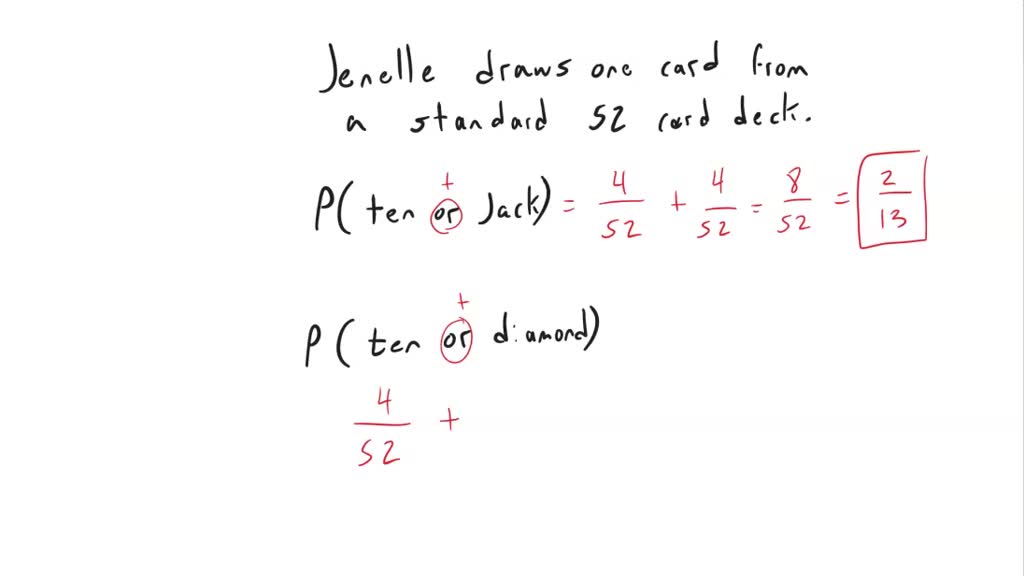 Jenelle draws one card from
a standard 52 card deck.
+
P( ten or Jack) = 4/52 + 4/52 = 8/52 = 2/13
+
P( ten or diamond)
4/52 +